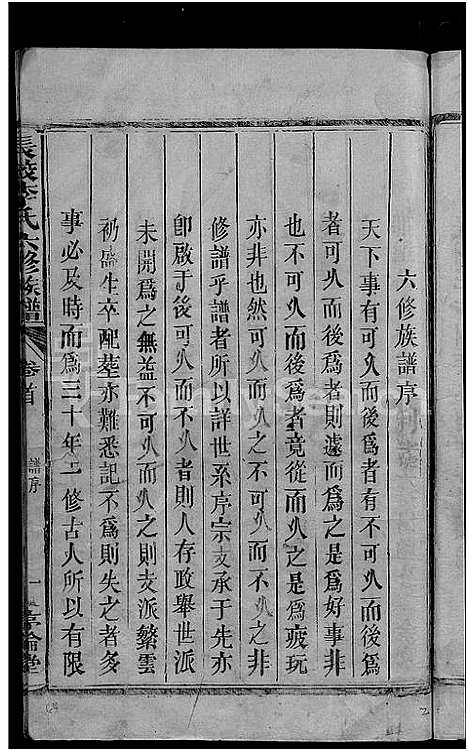 六修族譜序
天下事有可久而後爲者有不可久而後爲
者可久而後爲者則遽而爲之是爲好事非
也不可久而後爲者竟從而久之是爲疲玩
亦非也然可久之不可久而不之非
修譜乎譜者所以詳世系序宗支承于先亦
卽啟于後可久而不可久者則人存政舉世派
未開爲之無益不可久之則支派繁雲
礽盛生卒配塟亦難悉記不爲則失之者多
事必及時而爲三十年一修古人所以有限
長 李氏六修族譜
卷首
譜序
一
敦倫堂